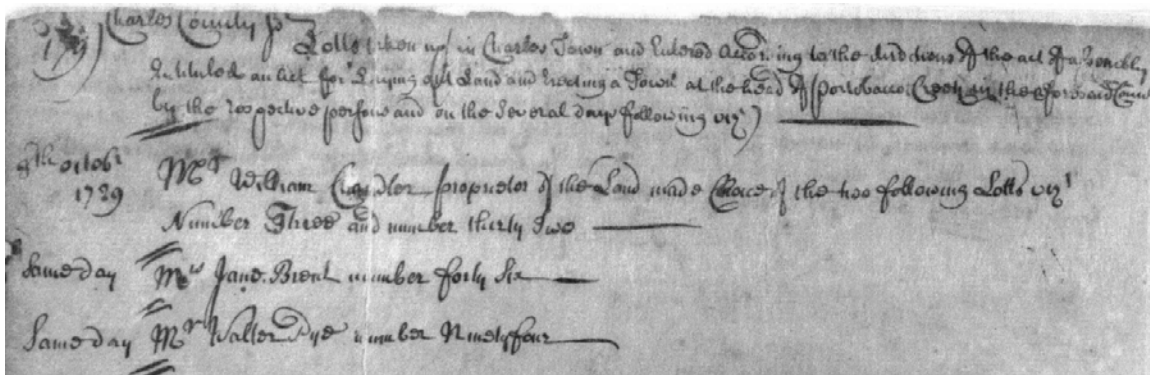 Charles County ss
Lotts taken up in Charles Town and Entered according to the directions of the act of assembly
Intituled an act for Laying out Land and Erecting a Town at the head of Portobacco Creek in the aforesaid County
by the respective persons and on the several days following viz)
8th octobr
1729
Mr William Chandler proprietor of the Land made Choice of the two following Lotts vizt
Number Three and number thirty Two
Same day Mrs Jane Brent number forty Six
Same day Mr Walter Pye number Ninety four